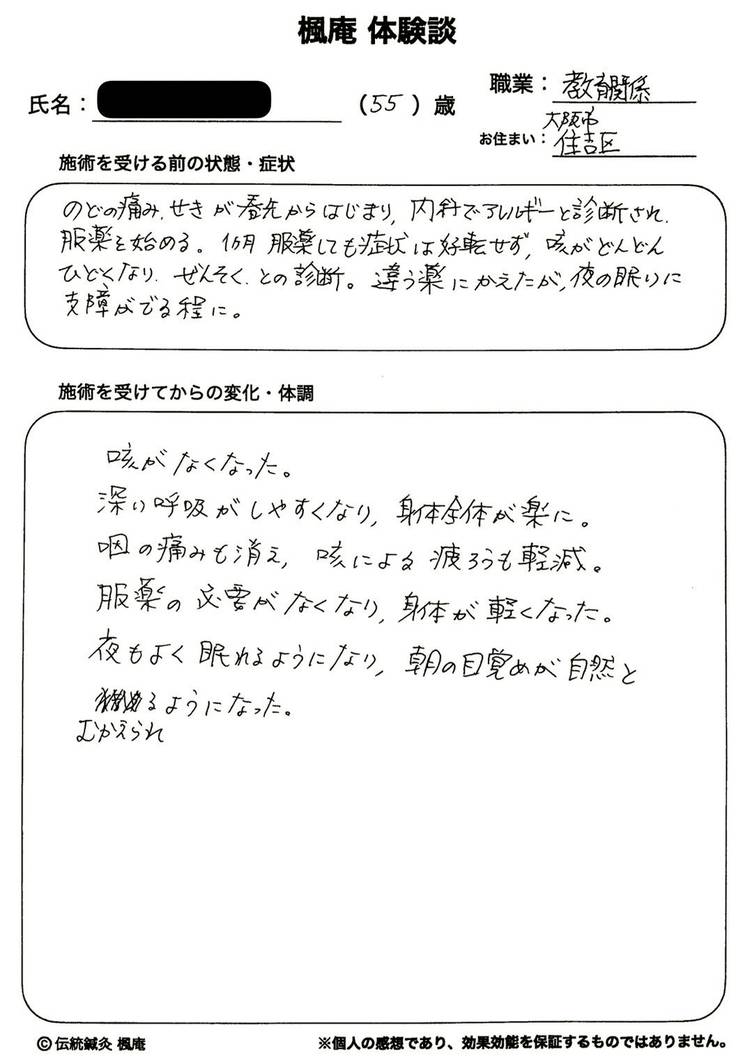 楓庵 体験談
氏名：
（55）歳
職業： 教育関係
お住まい： 大阪市
住吉区
施術を受ける前の状態・症状
のどの痛み、せきが春先からはじまり、内科でアレルギーと診断され、
服薬を始める。1カ月 服薬しても症状は好転せず、咳がどんどん
ひどくなり、ぜんそく、との診断。違う薬にかえたが、夜の眠りに
支障がでる程に。
施術を受けてからの変化・体調
咳がなくなった。
深い呼吸がしやすくなり、身体全体が楽に。
咽の痛みも消え、咳による疲ろうも軽減。
服薬の必要がなくなり、身体が軽くなった。
夜もよく眠れるようになり、朝の目覚めが自然と
るようになった。
むかえられ
© 伝統鍼灸 楓庵
※個人の感想であり、効果効能を保証するものではありません。